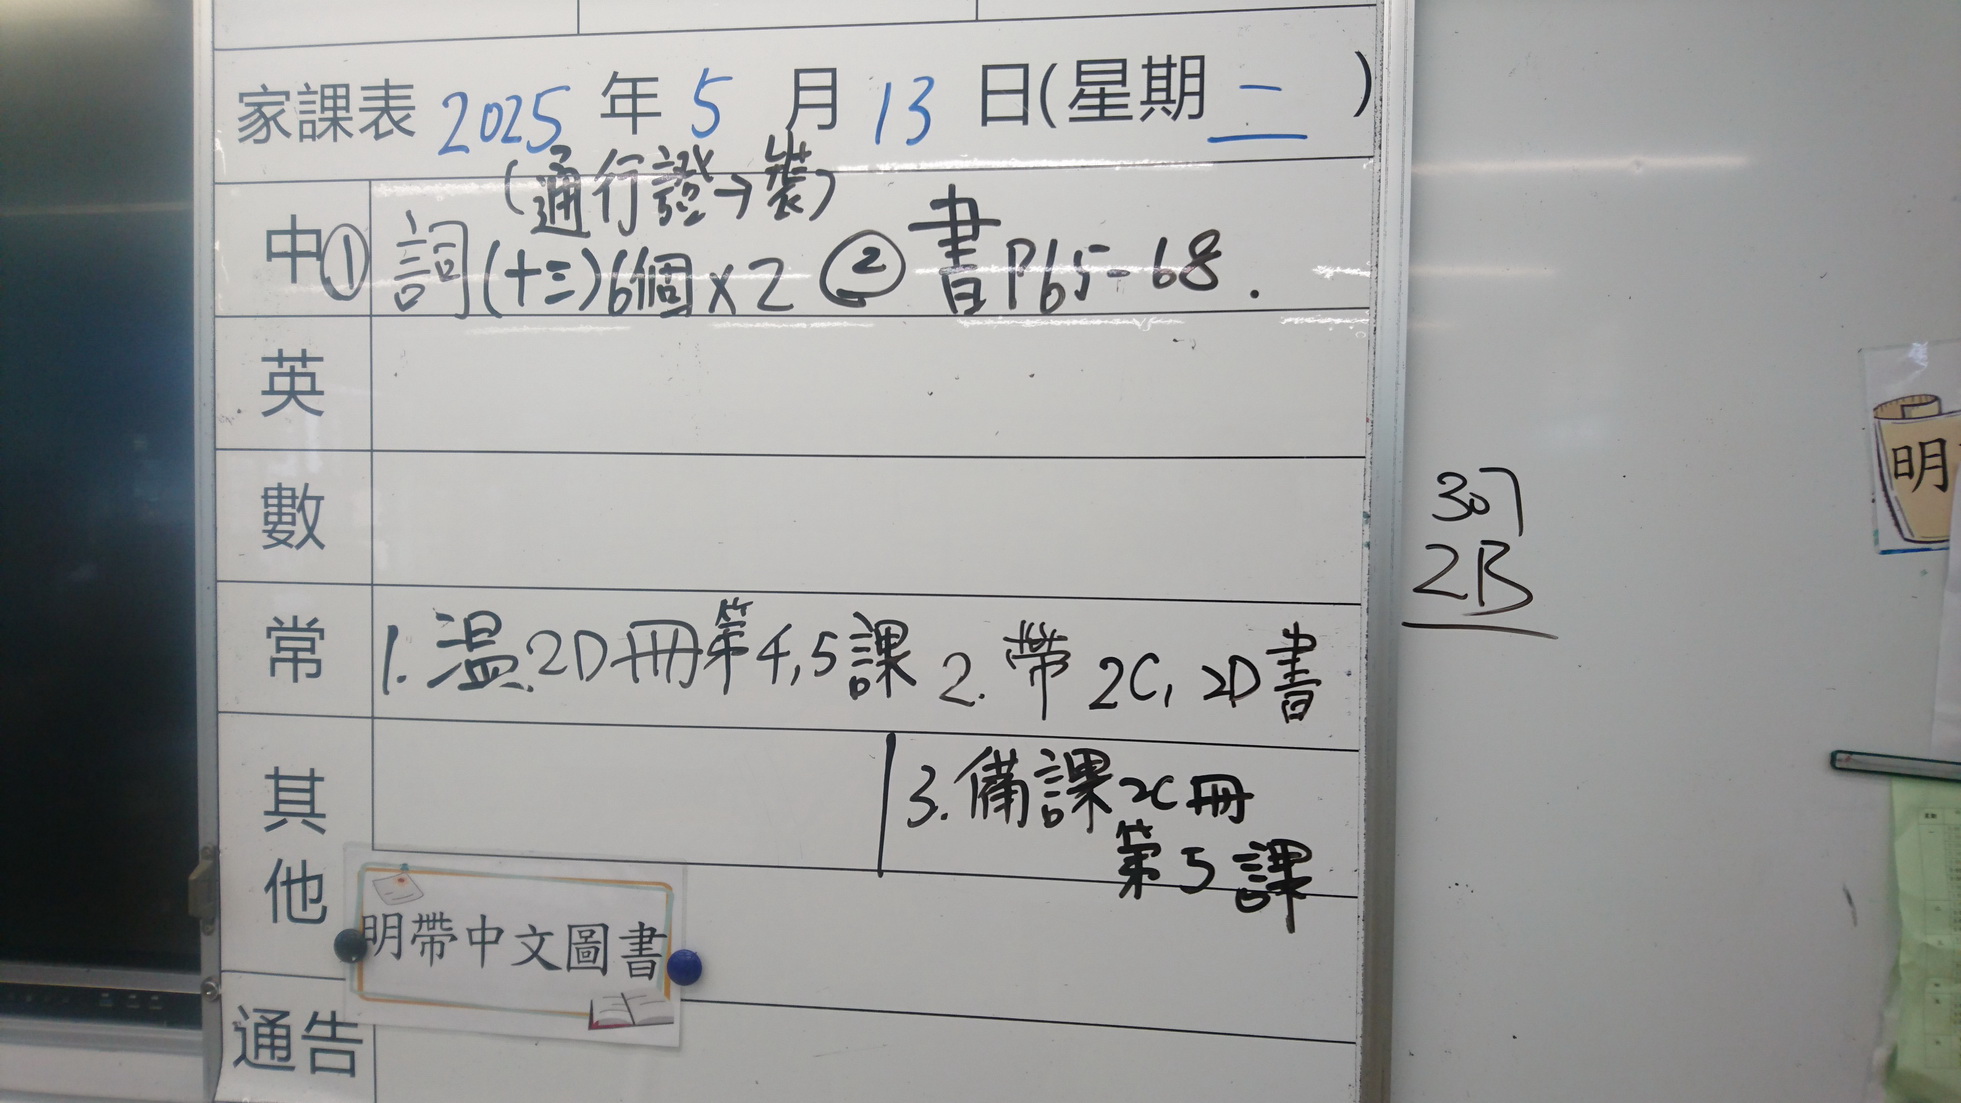 家課表 2025 年 5 月 13 日(星期 二 )
(通行證→裝)
中 ① 詞(十三)6個x2 ② 書P65-68.
英
數
常 1. 温2D冊第4,5課 2. 帶2C, 2D書
其他 3. 備課2C冊
第5課
明帶中文圖書
通告
2B
明